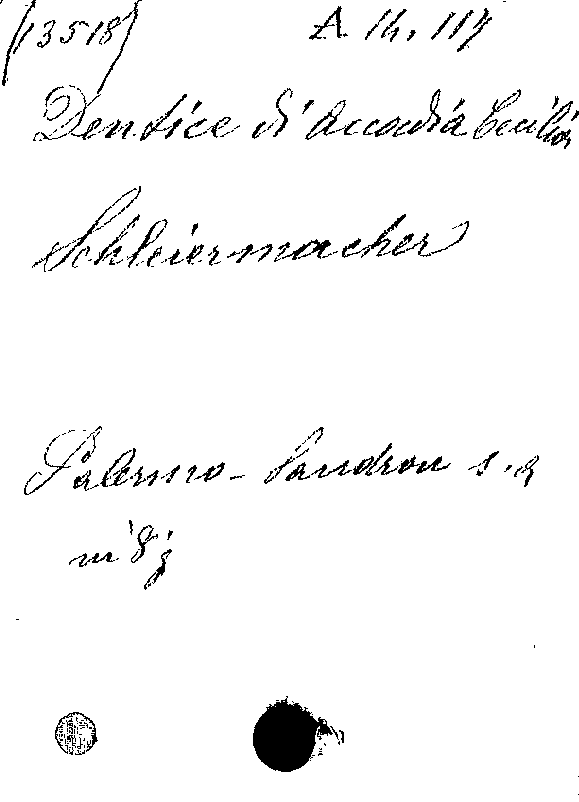 (13518) A. 14. 114
Dentice di Accadia Cecilia
Schleiermacher
Palermo - Sandron s. a
in 8º